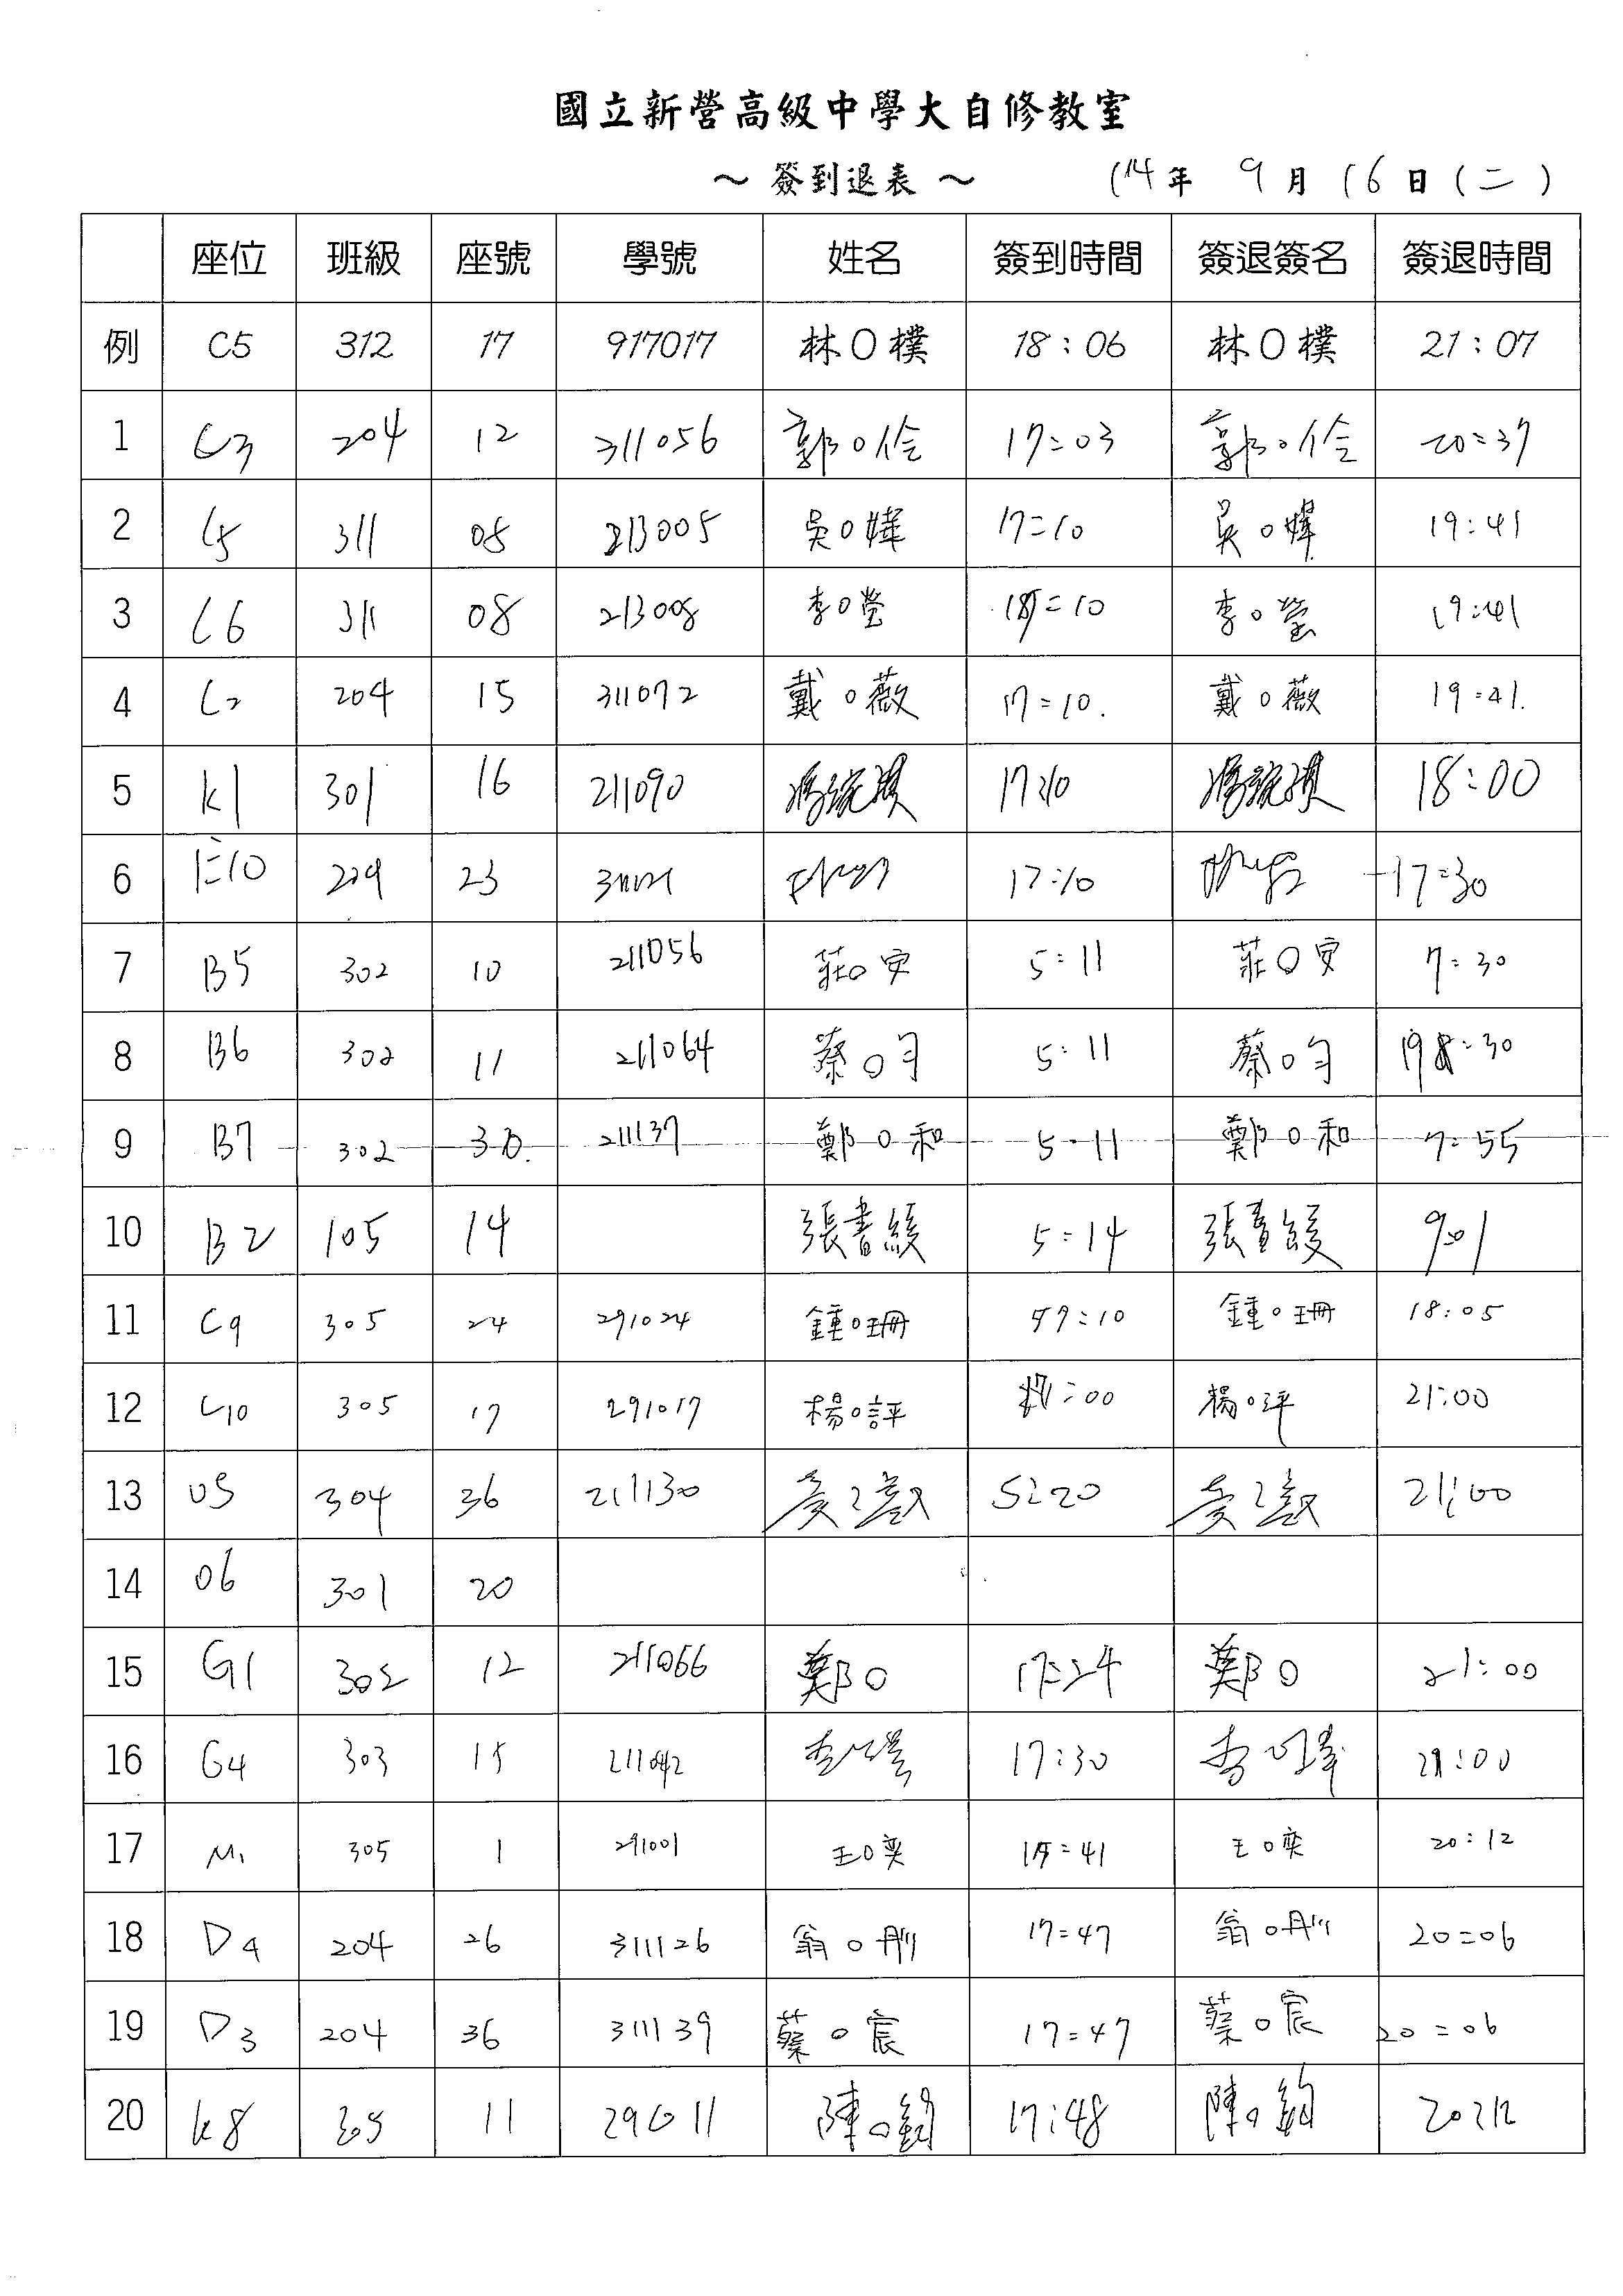 國立新營高級中學大自修教室
～ 簽到退表 ～ 114年 9月 16日(二)
座位 班級 座號 學號 姓名 簽到時間 簽退簽名 簽退時間
例 C5 312 17 917017 林O樸 18:06 林O樸 21:07
1 C3 204 12 311056 郭O伶 17:03 郭O伶 20:37
2 C5 311 05 213005 吳O媁 17:10 吳O媁 19:41
3 C6 311 08 213008 李O瑩 :10 李O瑩 19:41
4 C2 204 15 311072 戴O薇 17:10. 戴O薇 19:41.
5 K1 301 16 211090 17:10 18:00
6 E10 23 17:10 17:30
7 B5 302 10 211056 莊O寅 5:11 莊O寅 7:30
8 B6 302 11 211064 蔡O勻 5:11 蔡O勻 :30
9 B7 302 30. 211137 鄭O和 5:11 鄭O和 7:55
10 B2 105 14 張書綾 5:14 張書綾 9:01
11 C9 305 24 291024 鍾O珊 :10 鍾O珊 18:05
12 C10 305 17 291017 楊O評 :00 楊O評 21:00
13 304 36 211130 5:20 21:00
14 301 20
15 G1 302 12 211066 鄭O 17:24 鄭O 21:00
16 G4 303 15 211042 17:30 李 21:00
17 M1 305 1 291001 王O奕 :41 王O奕 20:12
18 D4 204 26 311126 翁O彤 17:47 翁O彤 20:06
19 D3 204 36 311139 蔡O宸 17:47 蔡O宸 20:06
20 K8 305 11 291011 陳O鈞 17:48 陳O鈞 20:12